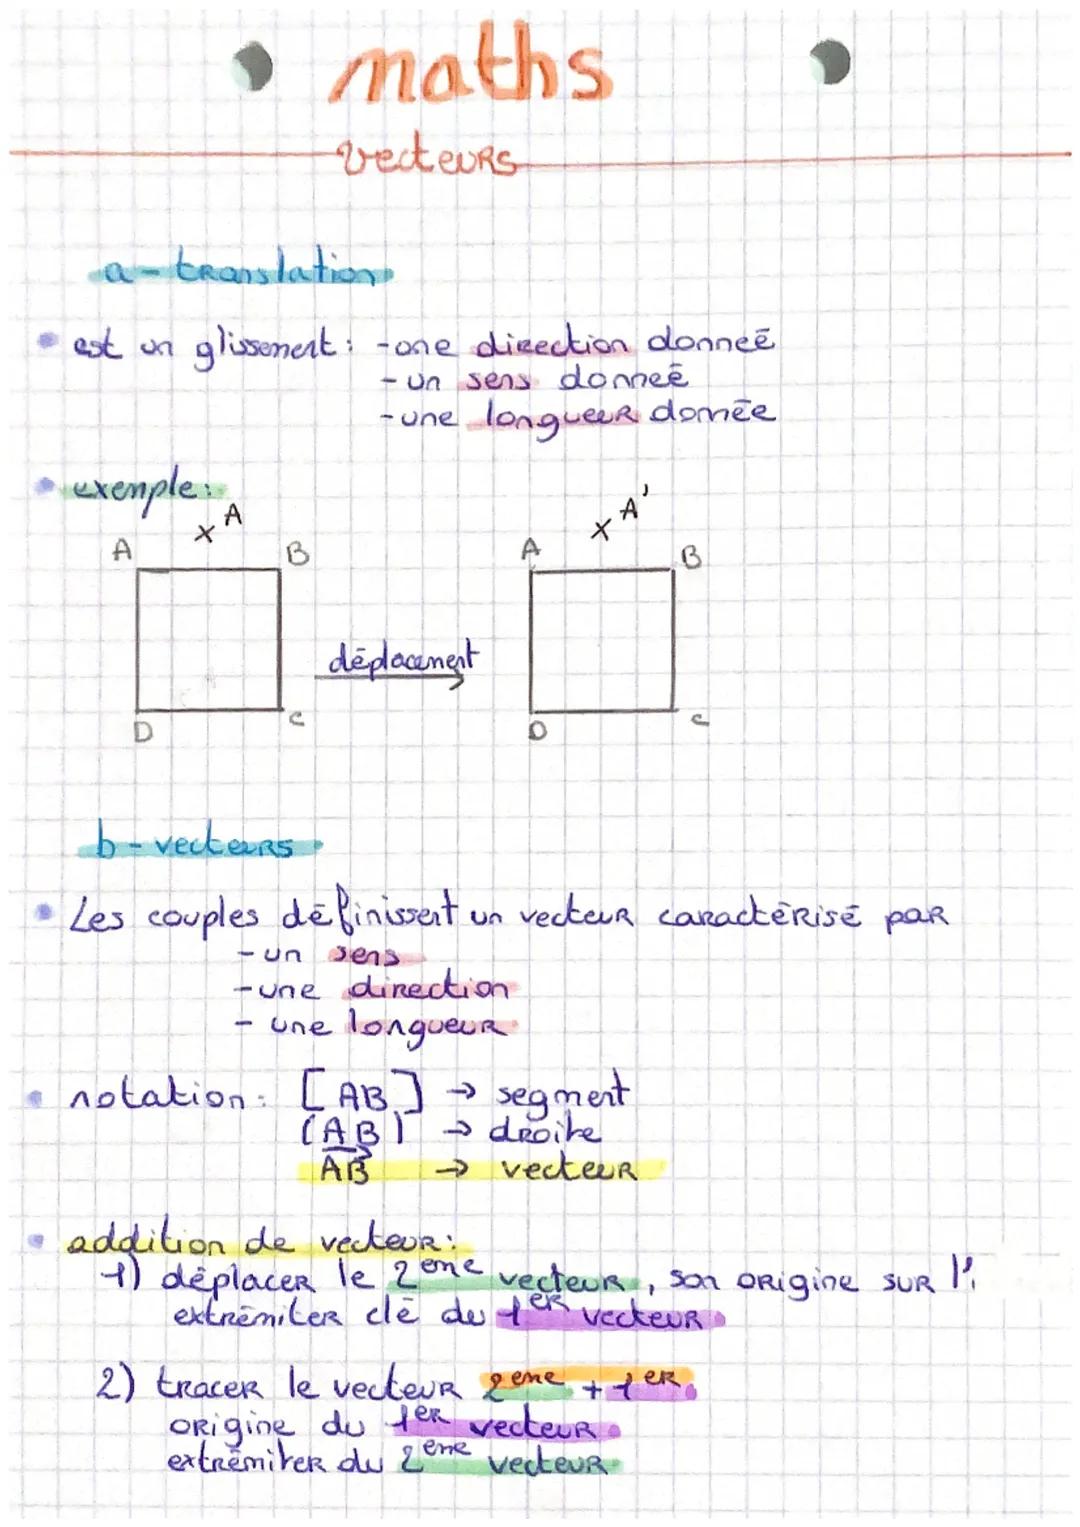 maths
vecteurs
a - translation
est un glissement : - une direction donneé
- un sens donneé
- une longueur donnée
exemple :
A
A'
A B
A B
déplacement
D C
D C
b - vecteurs
Les couples définissent un vecteur caractérisé par
- un sens
- une direction
- une longueur
notation : [AB] → segment
(AB) → droite
A⃗B⃗ → vecteur
addition de vecteur :
1) déplacer le 2eme vecteur, son origine sur l'
extrémiter clé du 1er vecteur
2) tracer le vecteur 2eme + 1er
origine du 1er vecteur
extrémiter du 2eme vecteur